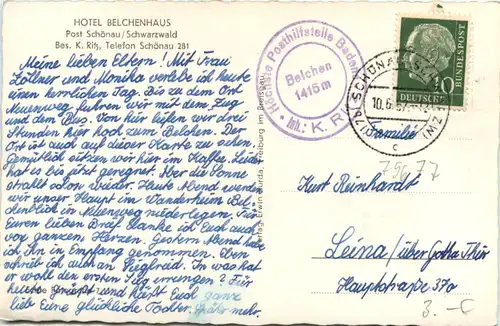 HOTEL BELCHENHAUS
Post Schönau/Schwarzwald
Bes. K. Ritz, Telefon Schönau 281
Meine lieben Eltern! Mit Frau
Zöllner und Monika verlebe ich heute
einen herrlichen Tag. Bis zu dem Ort
Neuenweg fuhren wir mit dem Zug
und dem Bus. Von hier liefen wir drei
Stunden hier hoch zum Belchen. Der
Ort ist auch auf dieser Karte zu sehen.
Gemütlich sitzen wir hier im Kaffee. Leider
hat es bis jetzt geregnet. Aber die Sonne
strahlt schon wieder. Heute Abend werden
wir unser Haupt im Wanderheim Bel-
chenblick in Neuenweg niederlegen. Für
Euren lieben Brief danke ich Euch auch
von ganzem Herzen. Gestern Abend habe
ich ihn in Empfang genommen. Eben
schreibe ich auch an Siegfried. In was hat
er wohl den ersten Sieg errungen? Für
heute grüßt und küßt Euch ganz
lieb Eure glückliche Tochter. Später mehr.
Höchste Posthilfsstelle Badens
Belchen
1415 m
Inh.: K. R
SCHÖNAU
10.6.
c
DEUTSCHE
BUNDESPOST
10
Verlag Erwin Burda, Freiburg im Breisgau
Familie
79677
Kurt Reinhardt
Leina/über Gotha Thür
Hauptstraße 370
3.-€